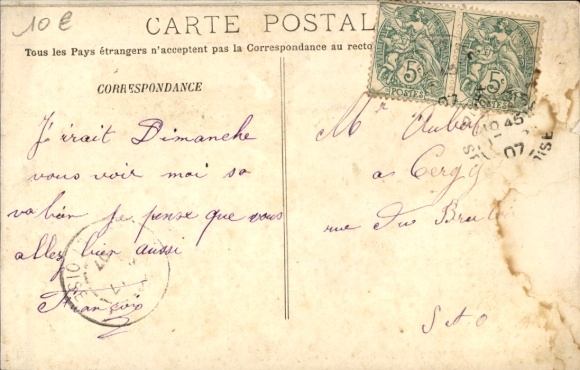 10 €
CARTE POSTAL
Tous les Pays étrangers n'acceptent pas la Correspondance au recto
CORRESPONDANCE
J'irait Dimanche
vous voir moi sa
va bien je pense que vous
allez bien aussi
François
5c
POSTES
5c
POSTES
45
07
OISE
Mr
a Cergy
rue du
S & O